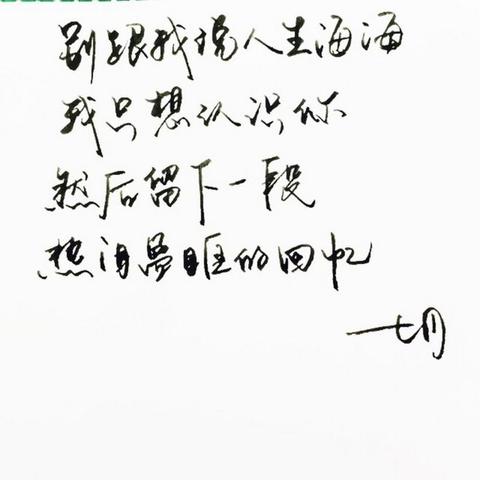 别跟我说人生海海
我只想认识你
然后留下一段
热泪盈眶的回忆
一七月